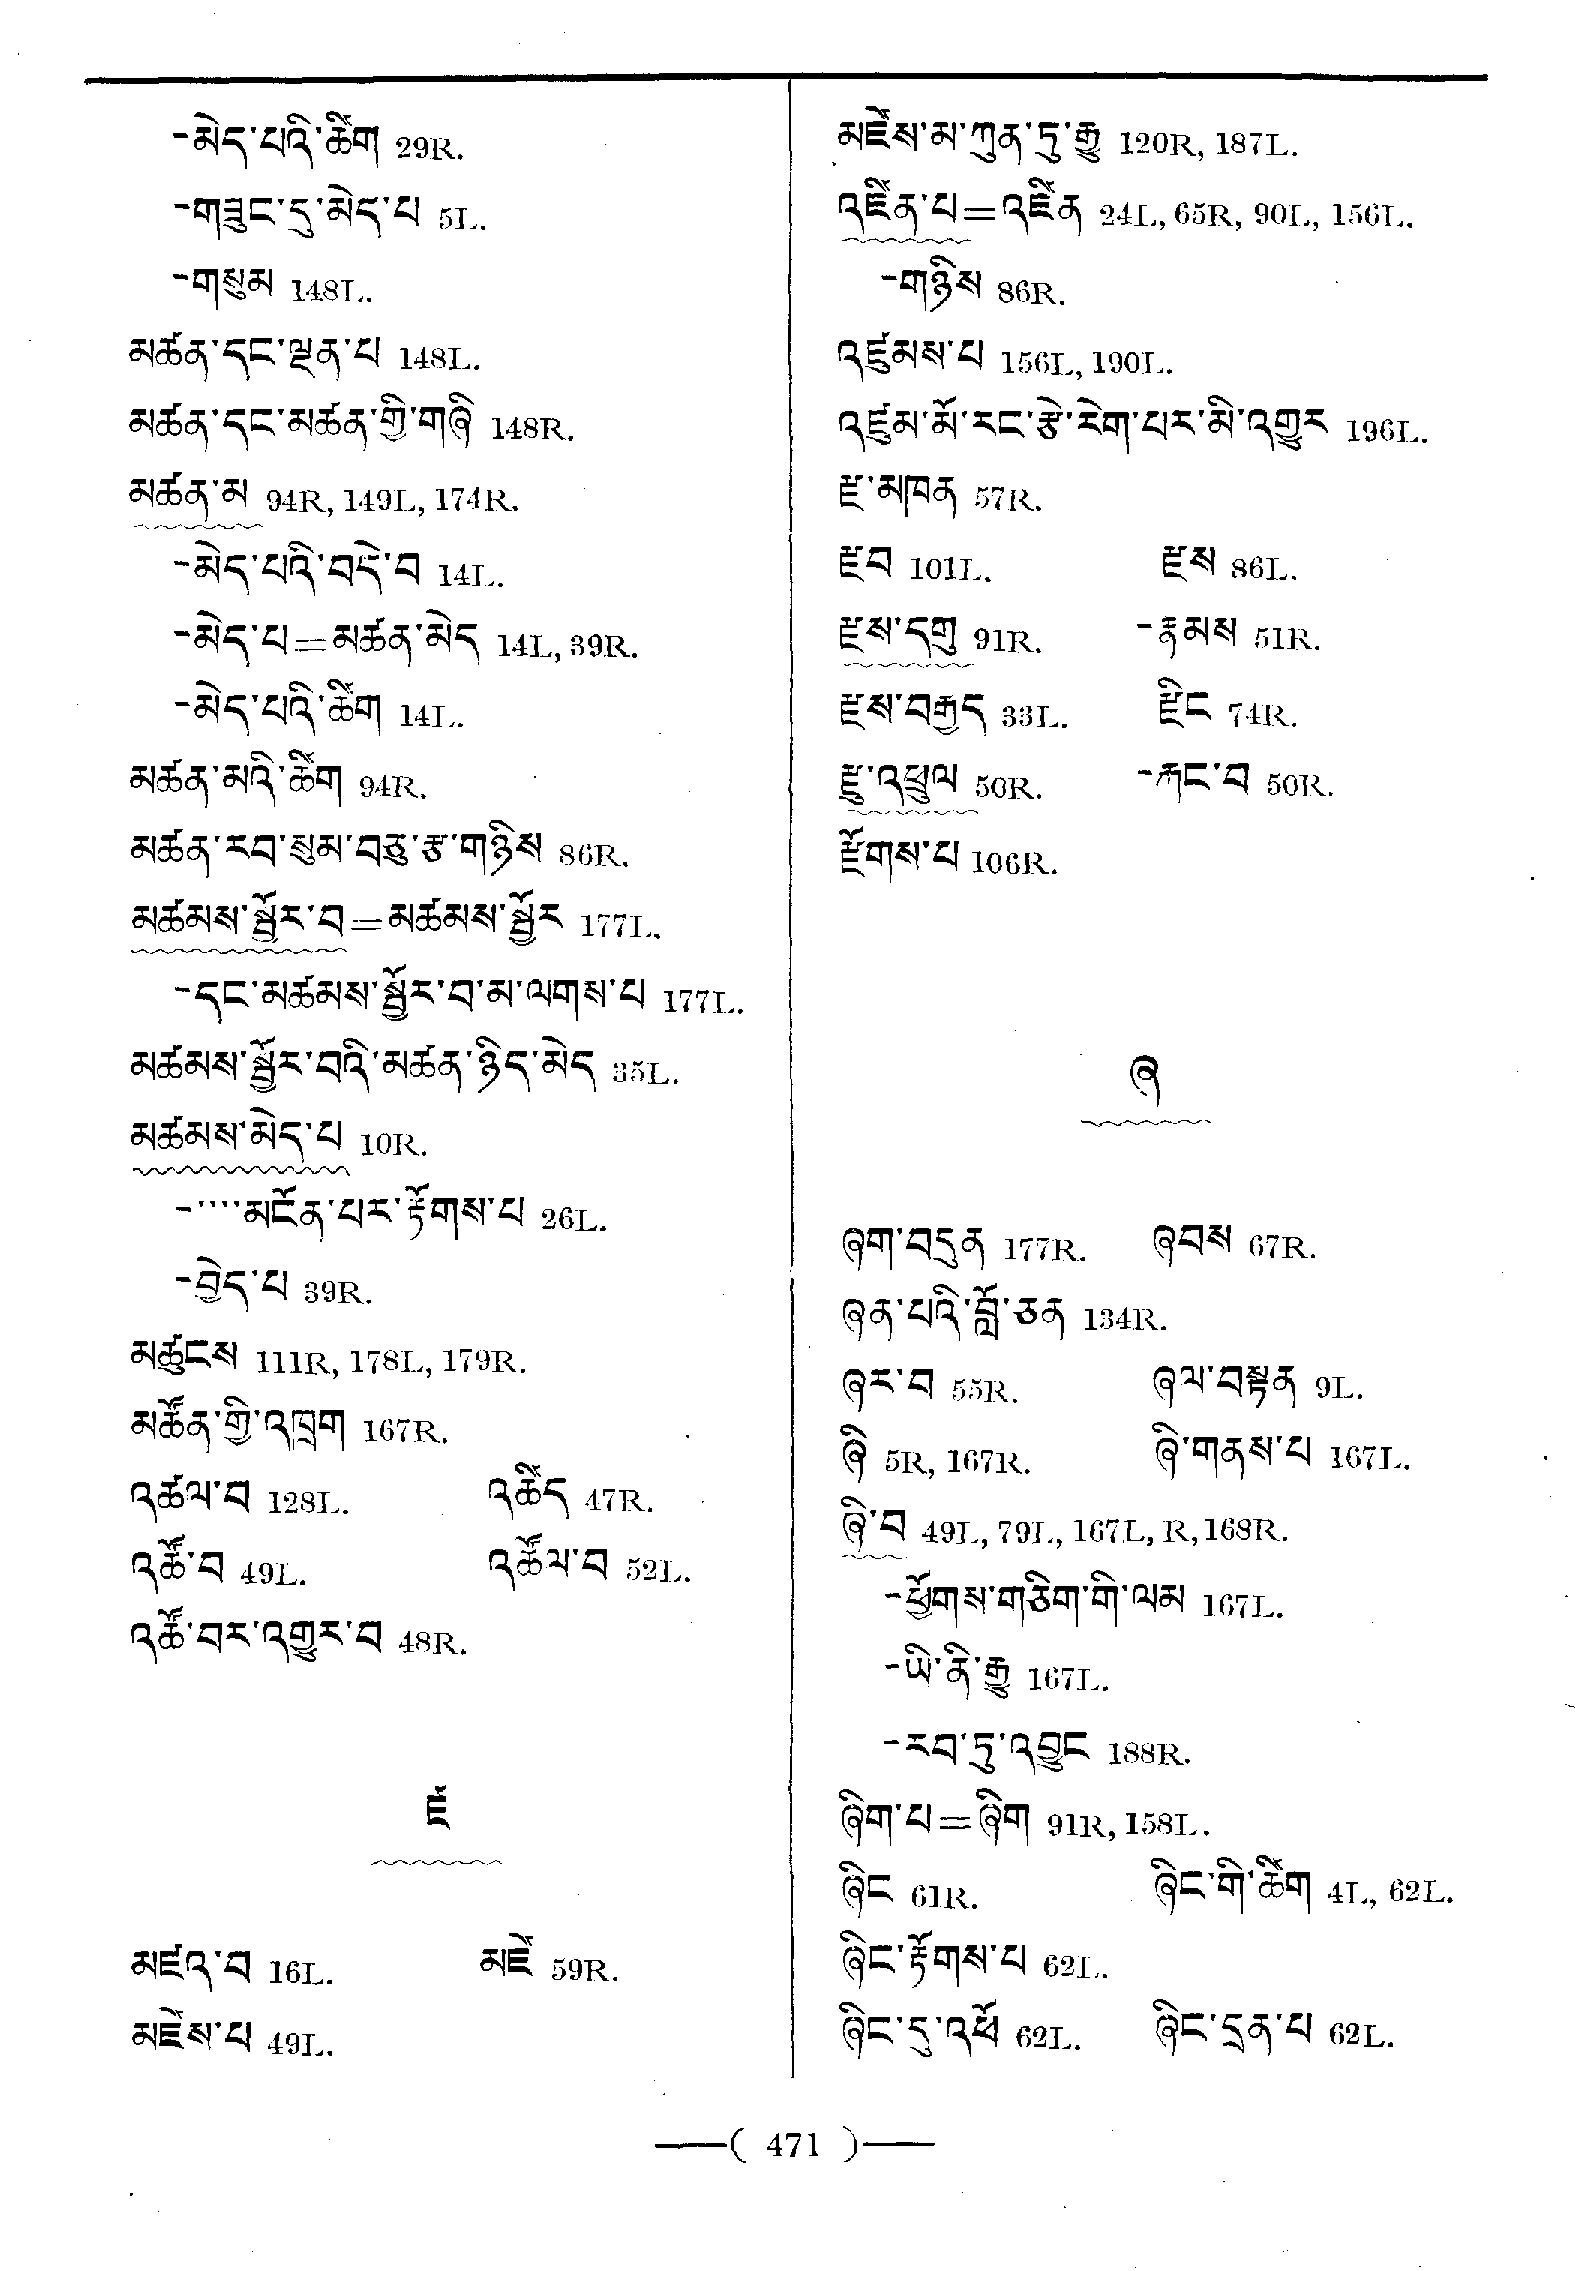 -མེད་པའི་ཚིག 29R.
-གཟུང་དུ་མེད་པ 5L.
-གསུམ 148L.
མཚན་དང་ལྡན་པ 148L.
མཚན་དང་མཚན་གྱི་གཞི 148R.
མཚན་མ 94R, 149L, 174R.
-མེད་པའི་བདེ་བ 14L.
-མེད་པ=མཚན་མེད 14L, 39R.
-མེད་པའི་ཚིག 14L.
མཚན་མའི་ཚིག 94R.
མཚན་རབ་སུམ་བཅུ་རྩ་གཉིས 86R.
མཚམས་སྦྱོར་བ=མཚམས་སྦྱོར 177L.
-དང་མཚམས་སྦྱོར་བ་མ་ལགས་པ 177L.
མཚམས་སྦྱོར་བའི་མཚན་ཉིད་མེད 35L.
མཚམས་མེད་པ 10R.
-་་་་མངོན་པར་རྟོགས་པ 26L.
-བྱེད་པ 39R.
མཚུངས 111R, 178L, 179R.
མཚོན་གྱི་འཁྲག 167R.
འཚལ་བ 128L. འཚིད 47R.
འཚོ་བ 49L. འཚོལ་བ 52L.
འཚོ་བར་འགྱུར་བ 48R.
ཛ
མཛའ་བ 16L. མཛེ 59R.
མཛེས་པ 49L.
མཛེས་མ་ཀུན་ཏུ་རྒྱུ 120R, 187L.
འཛིན་པ=འཛིན 24L, 65R, 90L, 156L.
-གཉིས 86R.
འཛུམས་པ 156L, 190L.
འཛུམ་མོ་རང་རྩེ་རེག་པར་མི་འགྱུར 196L.
རྫ་མཁན 57R.
རྫབ 101L. རྫས 86L.
རྫས་དགུ 91R. -རྙམས 51R.
རྫས་བརྒྱད 33L. རྫིང 74R.
རྫུ་འཕྲུལ 50R. -རྐང་བ 50R.
རྫོགས་པ 106R.
ཞ
ཞག་བདུན 177R. ཞབས 67R.
ཞན་པའི་བློ་ཅན 134R.
ཞར་བ 55R. ཞལ་བསྟན 9L.
ཞི 5R, 167R. ཞི་གནས་པ 167L.
ཞི་བ 49L, 79L, 167L, R, 168R.
-ཕྱོགས་གཅིག་གི་ལམ 167L.
-ཡི་ནི་རྒྱུ 167L.
-རབ་ཏུ་འབྱུང 188R.
ཞིག་པ=ཞིག 91R, 158L.
ཞིང 61R. ཞིང་གི་ཚིག 4L, 62L.
ཞིང་རྟོགས་པ 62L.
ཞིང་དུ་འཕོ 62L. ཞིང་དྲན་པ 62L.
—( 471 )—